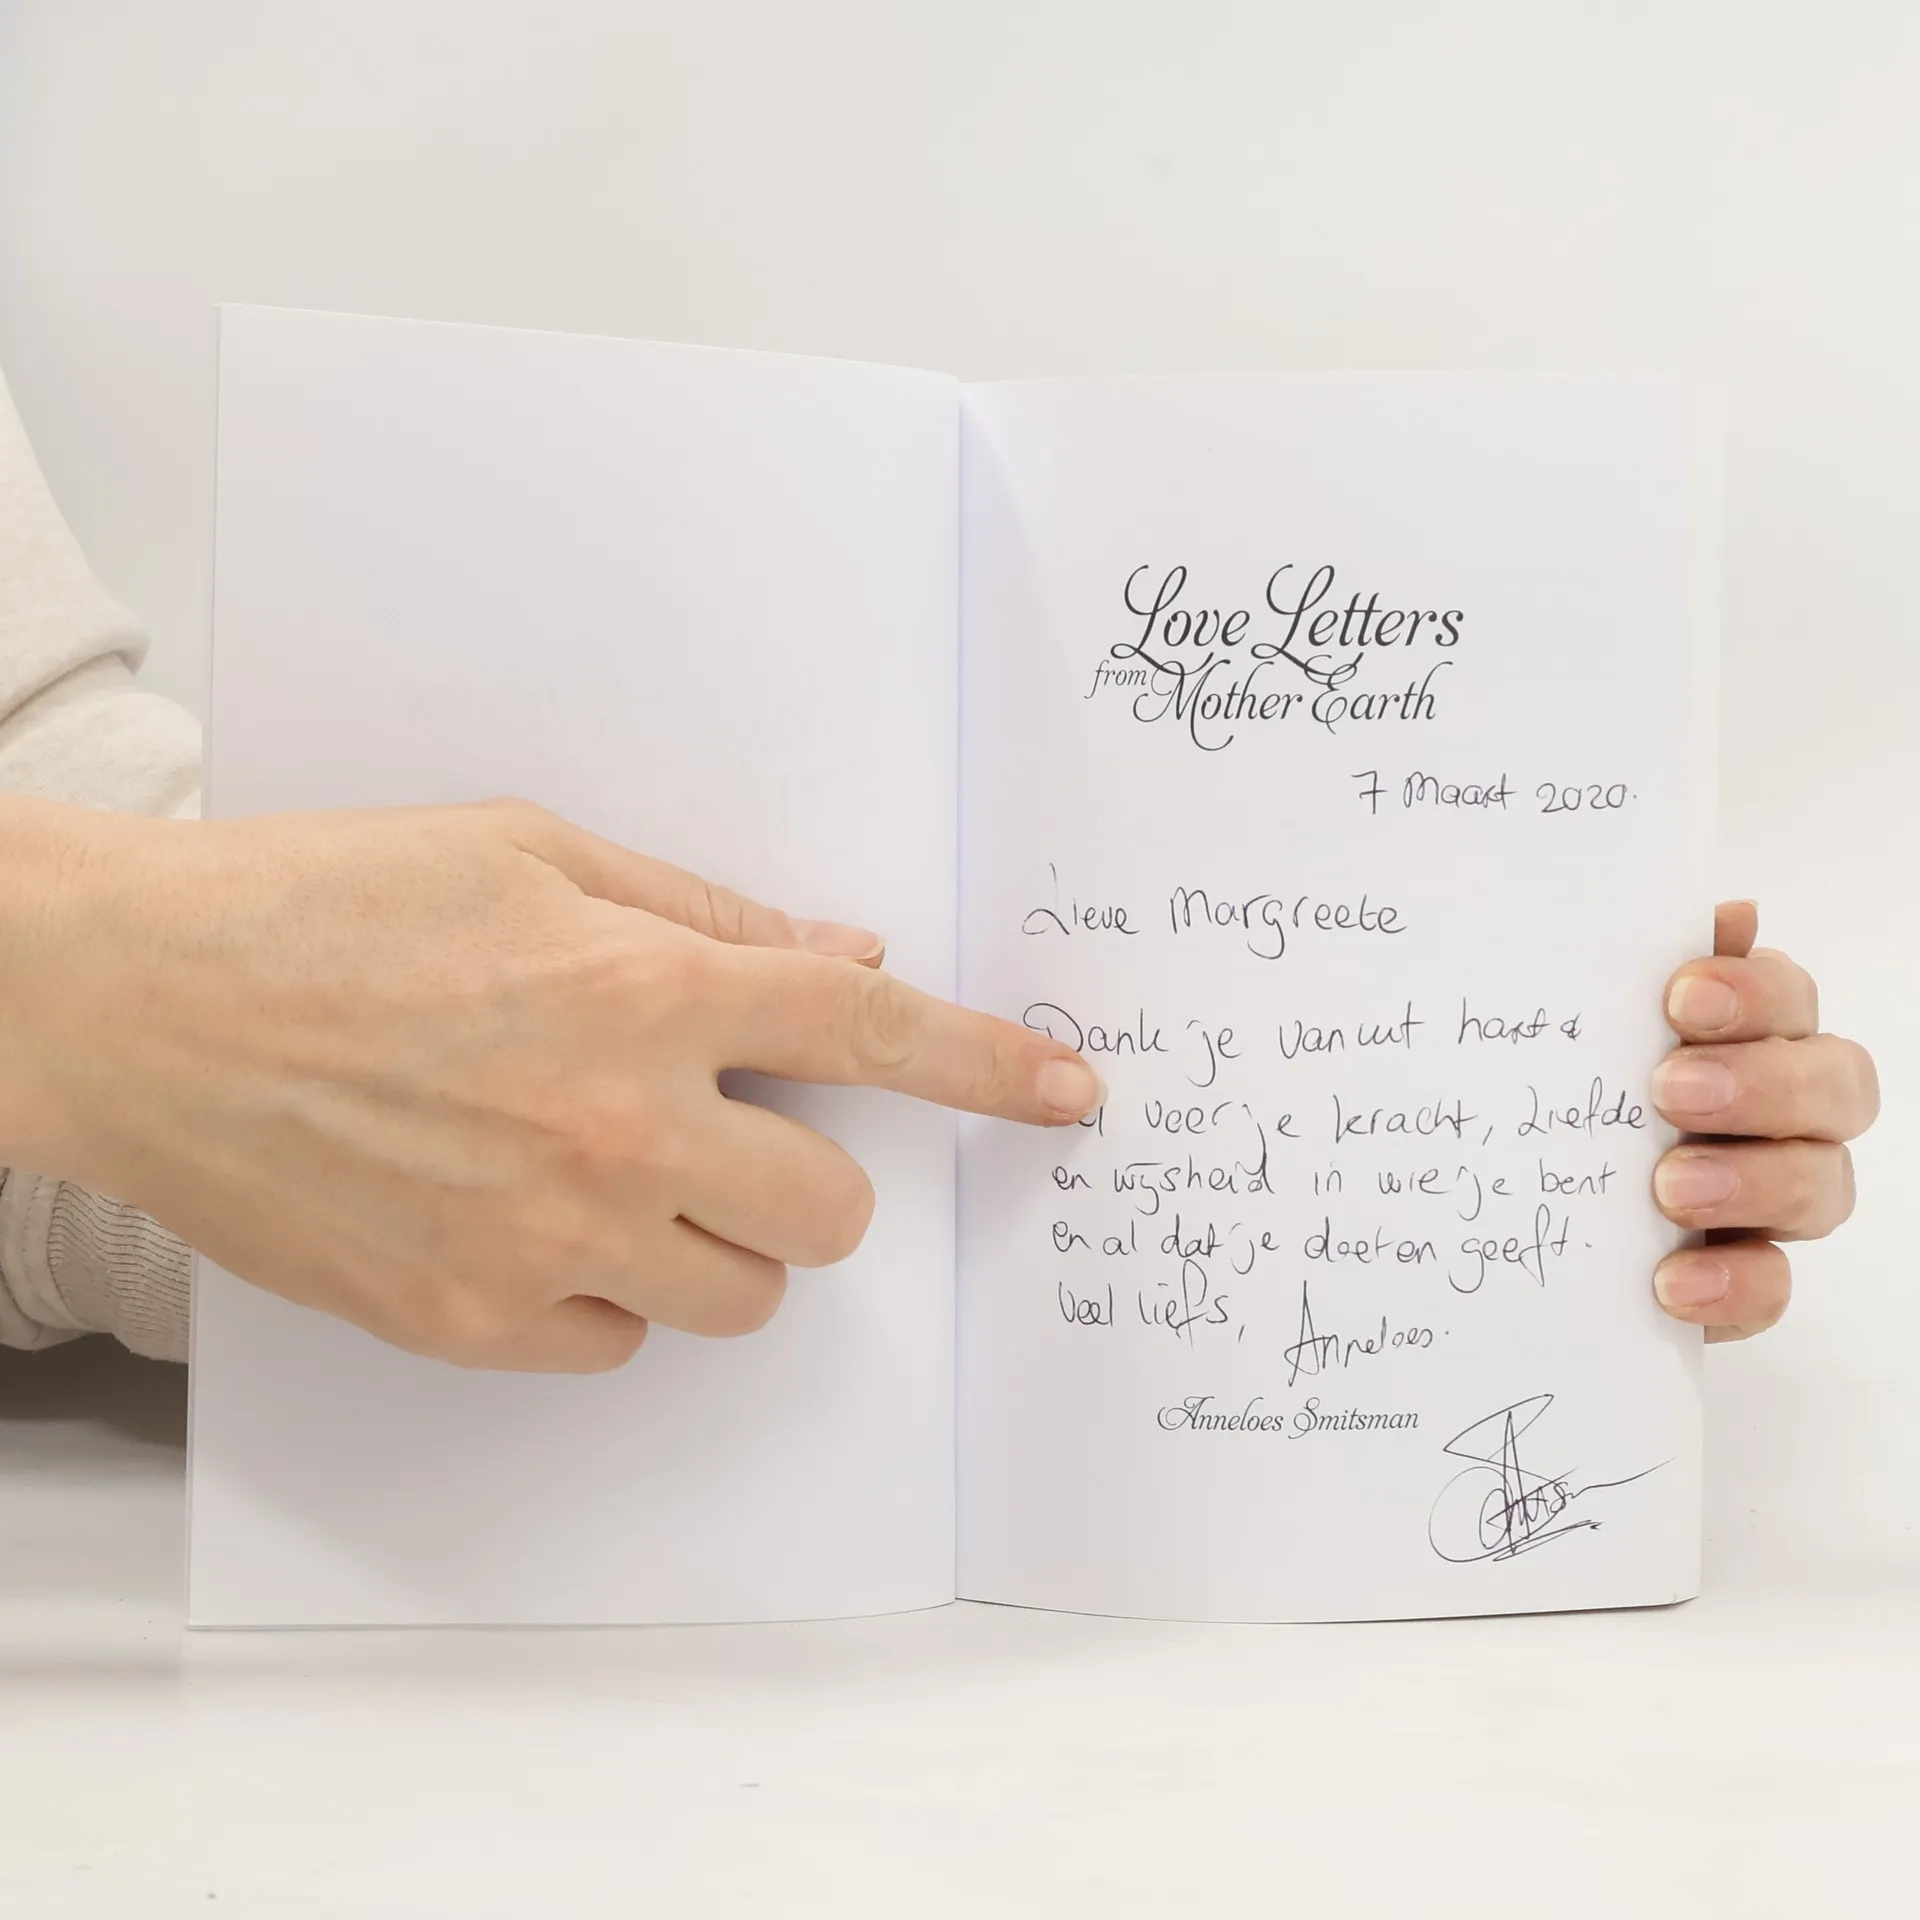 Love Letters
from Mother Earth
7 Maart 2020.
Lieve Margreete
Dank je vanuit hart &
voor je kracht, Liefde
en wijsheid in wie je bent
en al dat je doet en geeft.
Veel liefs, Anneloes.
Anneloes Smitsman